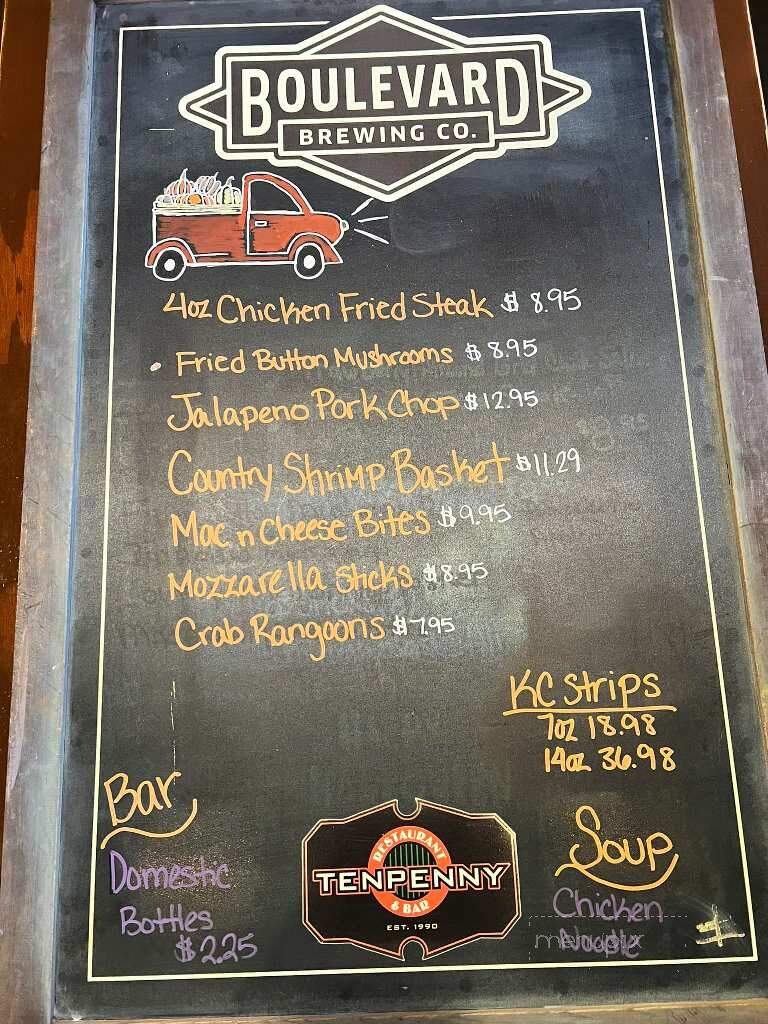 BOULEVARD
BREWING CO.
4oz Chicken Fried Steak $ 8.95
• Fried Button Mushrooms $ 8.95
Jalapeno Pork Chop $12.95
Country Shrimp Basket $11.29
Mac n Cheese Bites $9.95
Mozzarella Sticks $8.95
Crab Rangoons $7.95
KC Strips
7oz 18.98
14oz 36.98
Bar
Domestic
Bottles
$2.25
RESTAURANT
TENPENNY
& BAR
EST. 1990
Soup
Chicken
Noodle